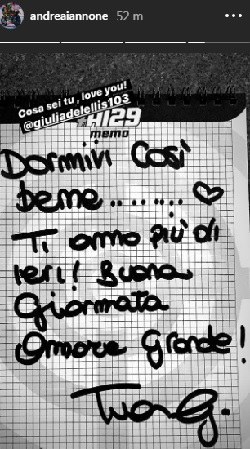 andreaiannone 52 m
Cosa sei tu, love you!
@giuliadelellis103
AI29
memo
Dormivi Così
bene........ ♡
Ti amo più di
ieri! Buona
Giornata
Amore Grande!
Tua G.